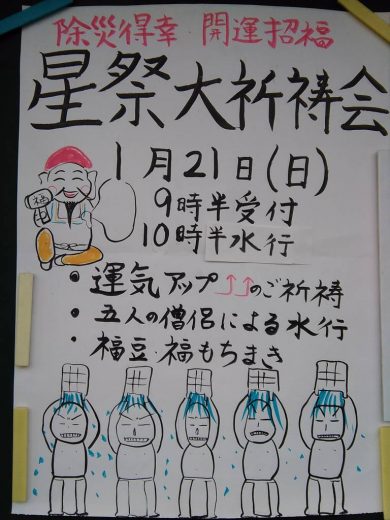 除災得幸 開運招福
星祭大祈祷会
1月21日(日)
9時半受付
10時半水行
・運気アップ⤴⤴のご祈祷
・五人の僧侶による水行
・福豆・福もちまき